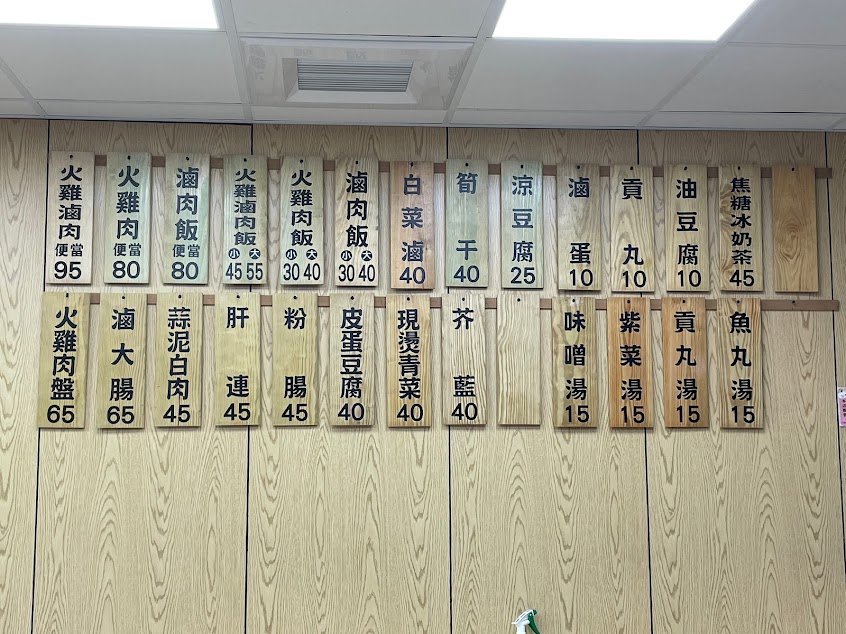 火雞滷肉便當95
火雞肉便當80
滷肉飯便當80
火雞滷肉飯小45大55
火雞肉飯小30大40
滷肉飯小30大40
白菜滷40
筍干40
涼豆腐25
滷蛋10
貢丸10
油豆腐10
焦糖冰奶茶45
火雞肉盤65
滷大腸65
蒜泥白肉45
肝連45
粉腸45
皮蛋豆腐40
現燙青菜40
芥藍40
味噌湯15
紫菜湯15
貢丸湯15
魚丸湯15